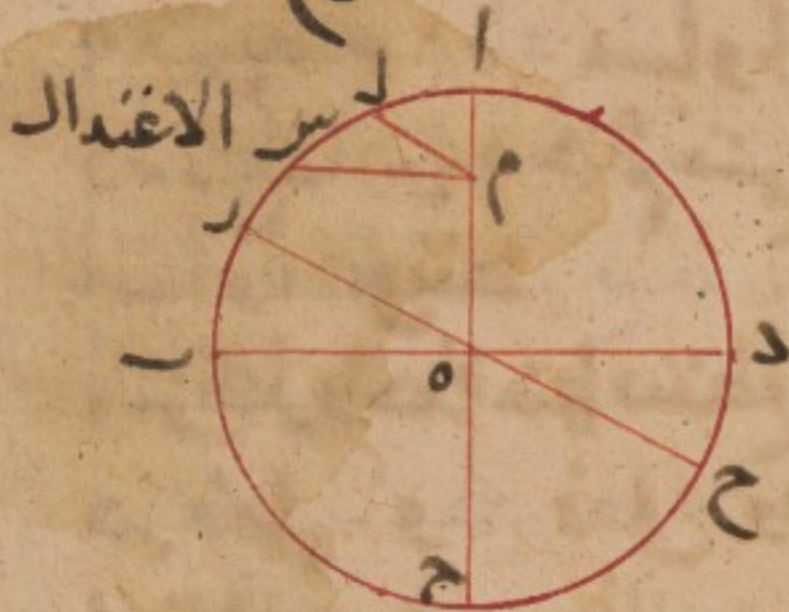 ا
ل
س الاعتدال
م
ر
ب
ه
د
ح
ج